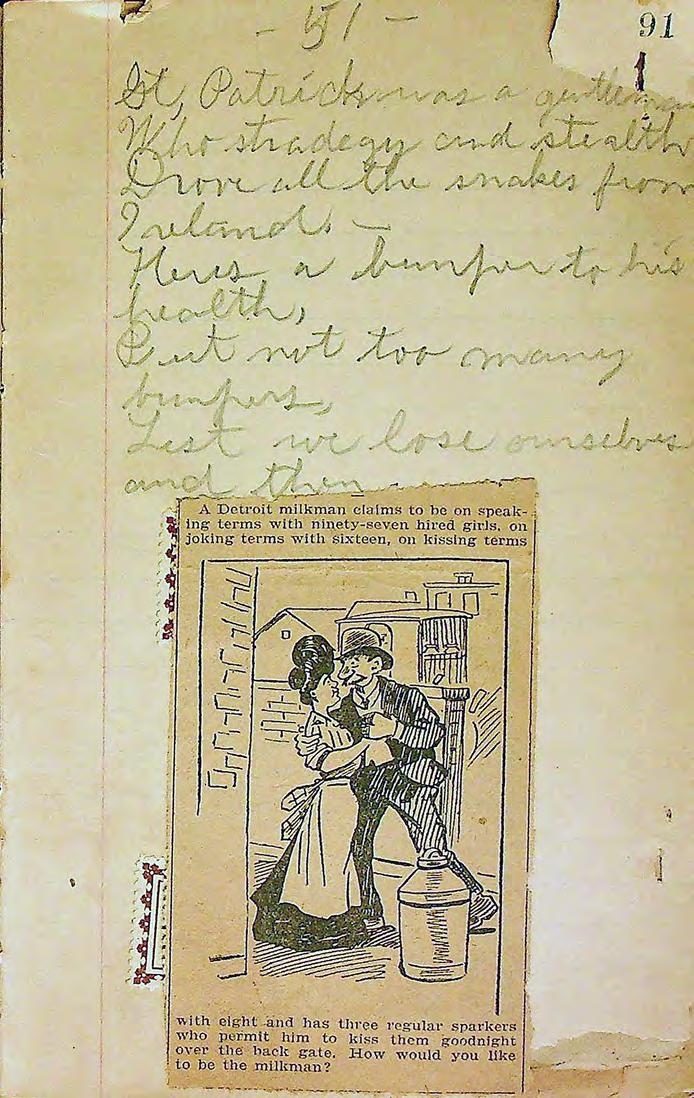 - 51 -
91
St, Patrick was a gentleman
Who stradagy and stealth
Drove all the snakes from
Ireland. —
Heres a bumper to his
health,
But not too many
bumpers,
Lest we lose ourselves
and then
A Detroit milkman claims to be on speak-
ing terms with ninety-seven hired girls, on
joking terms with sixteen, on kissing terms
with eight and has three regular sparkers
who permit him to kiss them goodnight
over the back gate. How would you like
to be the milkman?